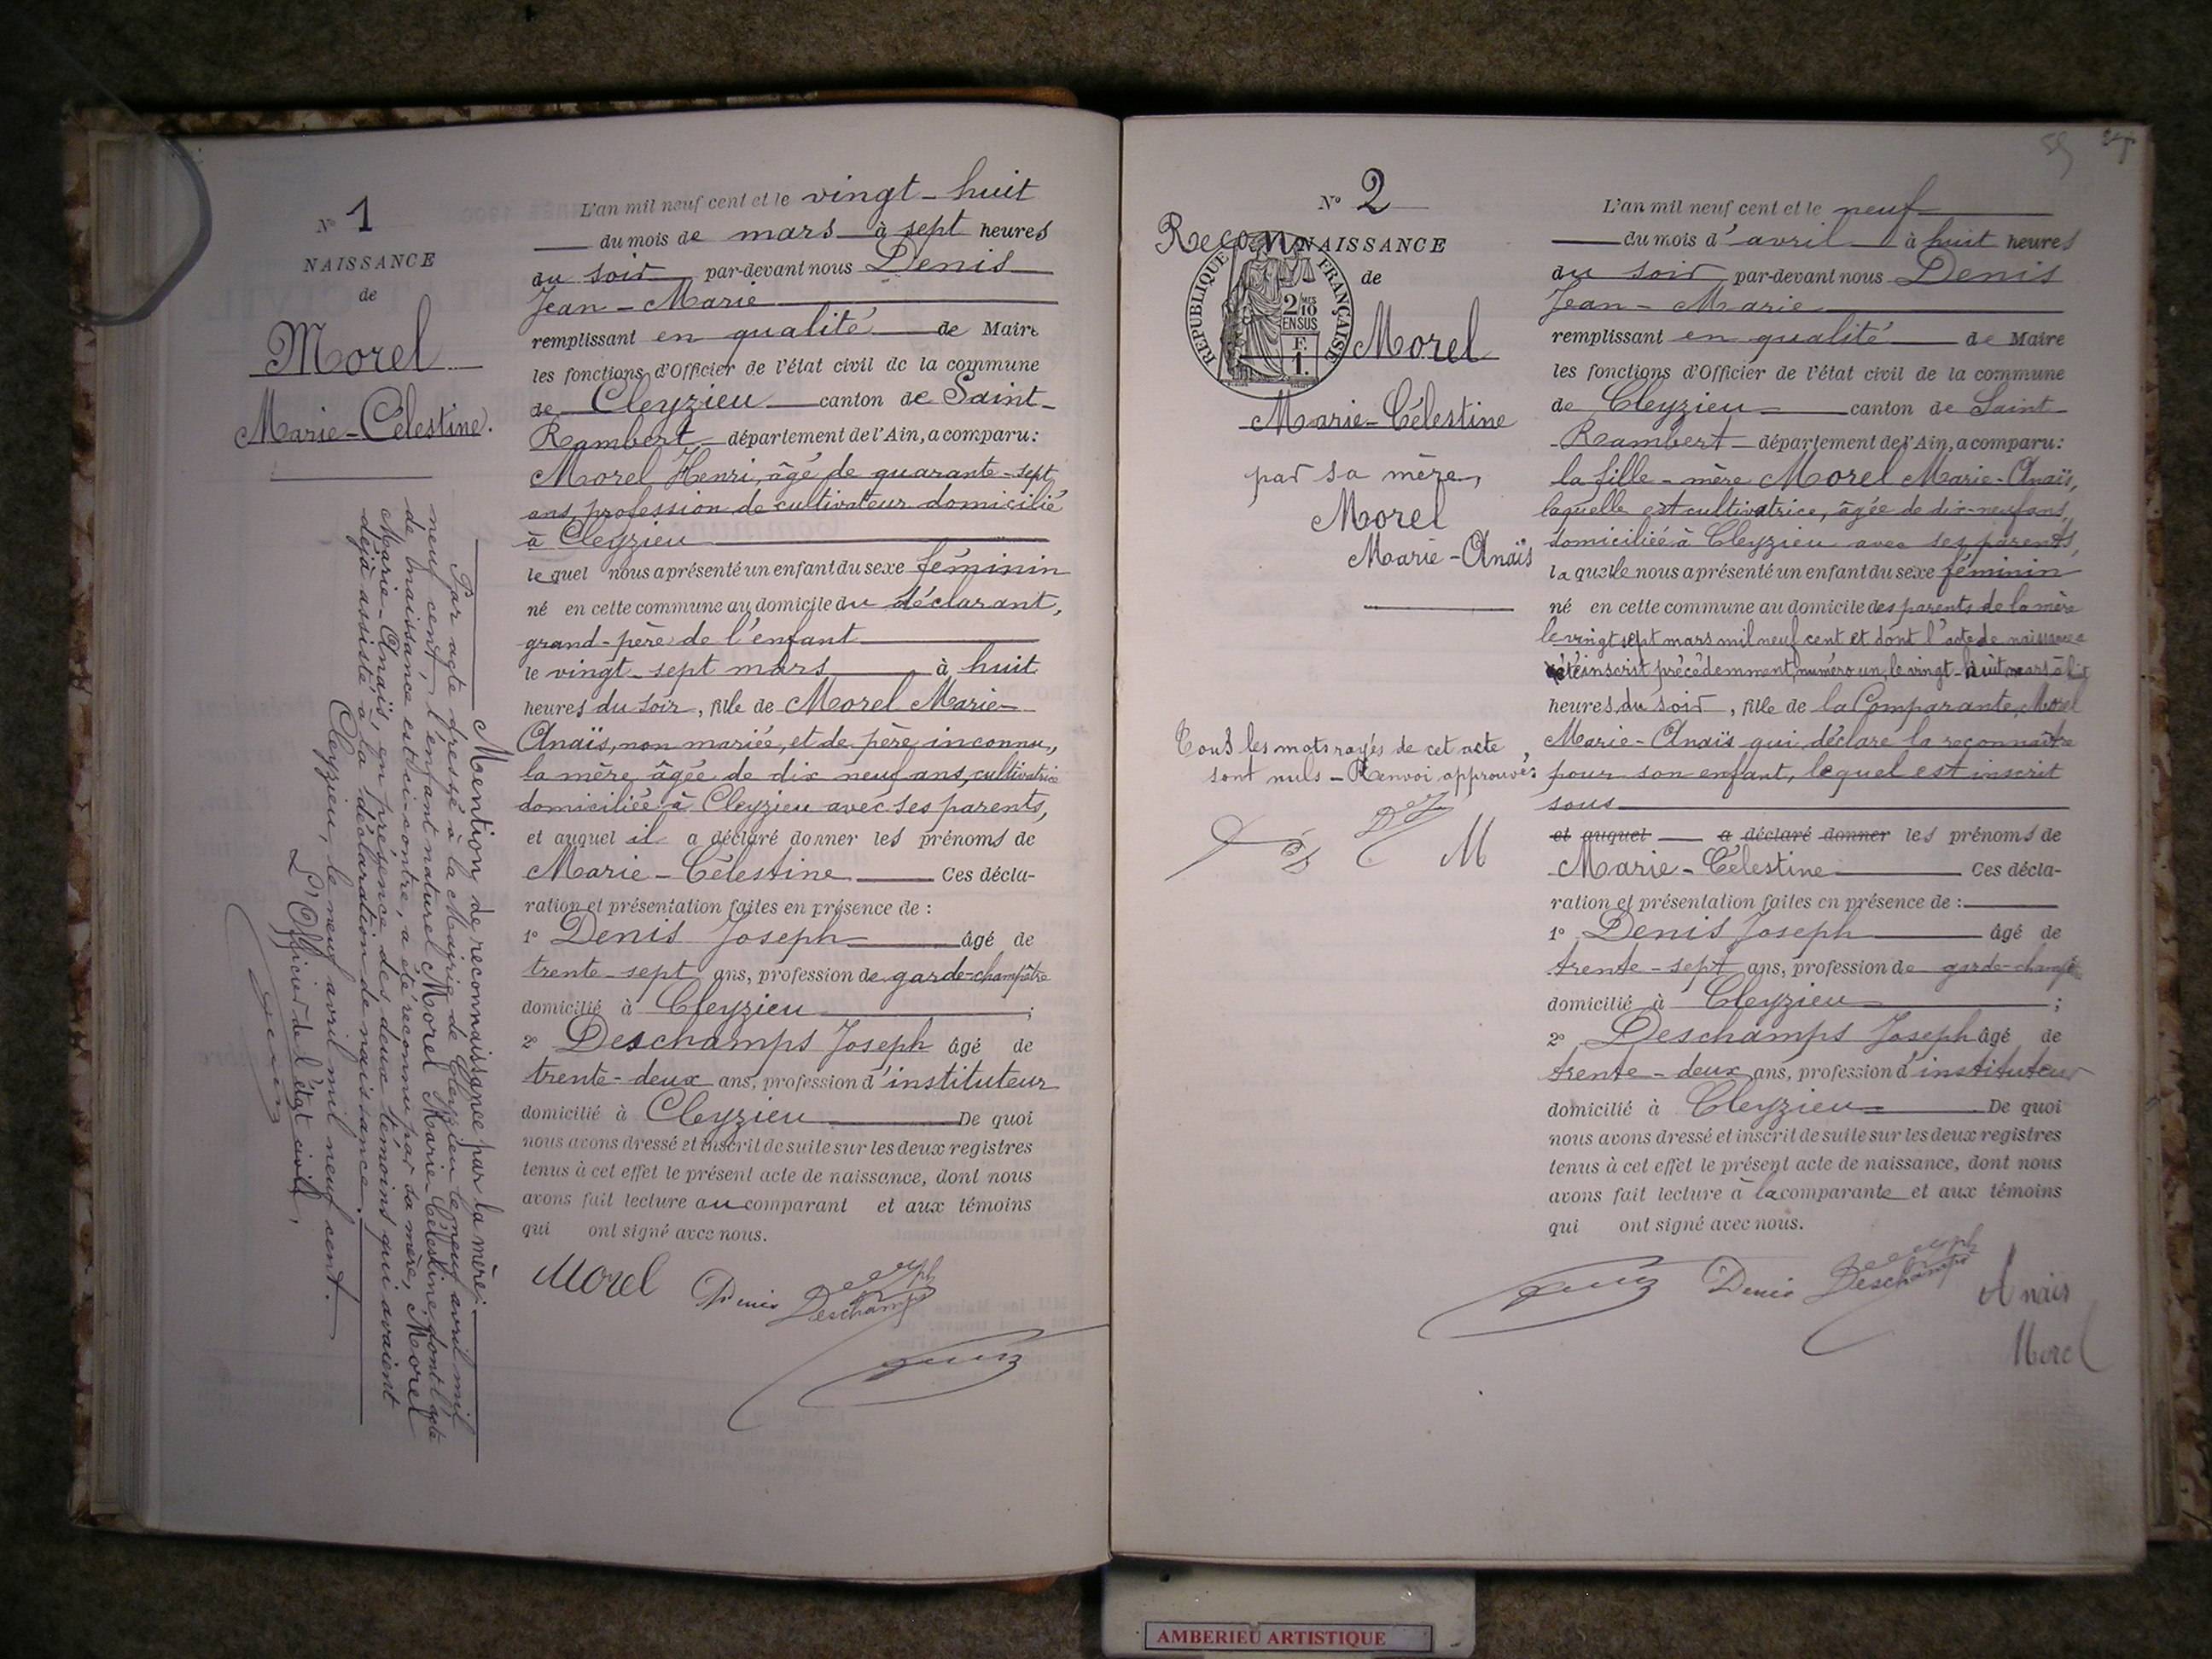 N° 1
NAISSANCE
de
Morel
Marie-Célestine.
Mention de reconnaissance par la mère:
Par acte dressé à la Mairie de Cleyzieu le neuf avril mil
neuf cent, l'enfant naturel Morel Marie-Célestine dont l'acte
de naissance est ci-contre, a été reconnu par sa mère, Morel
Marie-Anaïs, en présence des deux témoins qui avaient
déjà assisté à la déclaration de naissance.
Cleyzieu, le neuf avril mil neuf cent.
L'Officier de l'état civil,
L'an mil neuf cent et le vingt-huit
du mois de mars à sept heures
du soir par-devant nous Denis
Jean-Marie
remplissant en qualité de Maire
les fonctions d'Officier de l'état civil de la commune
de Cleyzieu canton de Saint-
Rambert département de l'Ain, a comparu:
Morel Henri, âgé de quarante-sept
ans, profession de cultivateur domicilié
à Cleyzieu
lequel nous a présenté un enfant du sexe féminin
né en cette commune au domicile du déclarant,
grand-père de l'enfant
le vingt-sept mars à huit
heures du soir, fille de Morel Marie-
Anaïs, non mariée, et de père inconnu,
la mère âgée de dix neuf ans, cultivatrice
domiciliée à Cleyzieu avec ses parents,
et auquel il a déclaré donner les prénoms de
Marie-Célestine Ces décla-
ration et présentation faites en présence de :
1° Denis Joseph âgé de
trente-sept ans, profession de garde-champêtre
domicilié à Cleyzieu ;
2° Deschamps Joseph âgé de
trente-deux ans, profession d'instituteur
domicilié à Cleyzieu De quoi
nous avons dressé et inscrit de suite sur les deux registres
tenus à cet effet le présent acte de naissance, dont nous
avons fait lecture au comparant et aux témoins
qui ont signé avec nous.
Morel Denis Deschamps
N° 2
Recon NAISSANCE
de
REPUBLIQUE FRANÇAISE
2/10 MES
EN SUS
F.
1.
Morel
Marie-Célestine
par sa mère,
Morel
Marie-Anaïs
Tous les mots rayés de cet acte
sont nuls - Renvoi approuvé:
M
L'an mil neuf cent et le neuf
du mois d'avril à huit heures
du soir par-devant nous Denis
Jean-Marie
remplissant en qualité de Maire
les fonctions d'Officier de l'état civil de la commune
de Cleyzieu canton de Saint
Rambert département de l'Ain, a comparu:
la fille-mère Morel Marie-Anaïs,
laquelle est cultivatrice, âgée de dix-neuf ans,
domiciliée à Cleyzieu avec ses parents,
laquelle nous a présenté un enfant du sexe féminin
né en cette commune au domicile des parents de la mère
le vingt sept mars mil neuf cent et dont l'acte de naissance
été inscrit précédemment, numéro un, le vingt-huit mars à
heures du soir, fille de la Comparante, Morel
Marie-Anaïs qui déclare la reconnaître
pour son enfant, lequel est inscrit
sous
et auquel a déclaré donner les prénoms de
Marie-Célestine Ces décla-
ration et présentation faites en présence de :
1° Denis Joseph âgé de
trente-sept ans, profession de garde-champê
domicilié à Cleyzieu ;
2° Deschamps Joseph âgé de
trente-deux ans, profession d'instituteur
domicilié à Cleyzieu De quoi
nous avons dressé et inscrit de suite sur les deux registres
tenus à cet effet le présent acte de naissance, dont nous
avons fait lecture à la comparante et aux témoins
qui ont signé avec nous.
Denis Deschamps Anaïs
Morel
AMBERIEU ARTISTIQUE